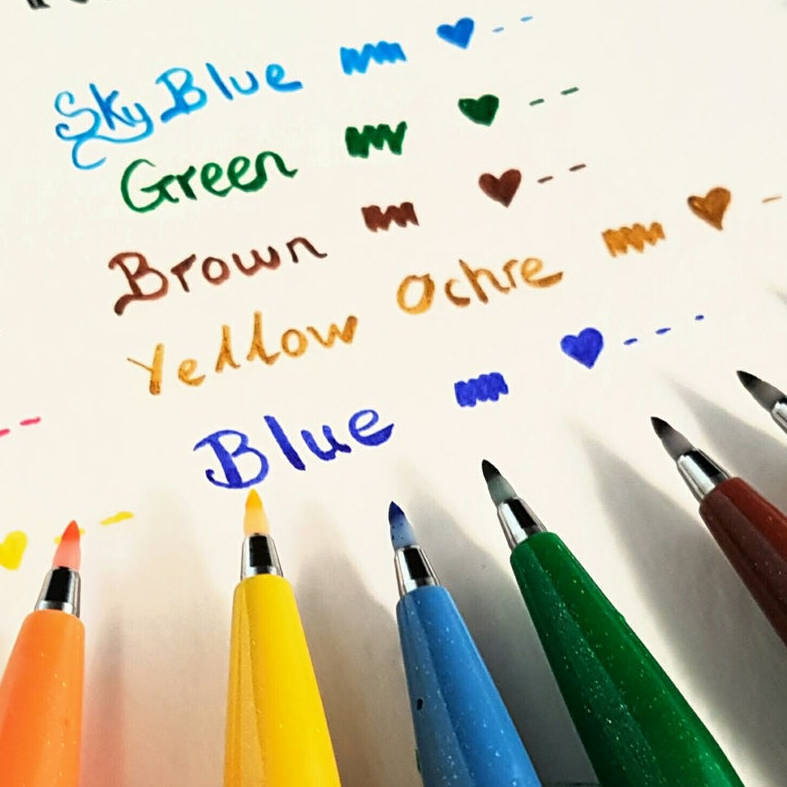 Sky Blue
Green
Brown
Yellow Ochre
Blue